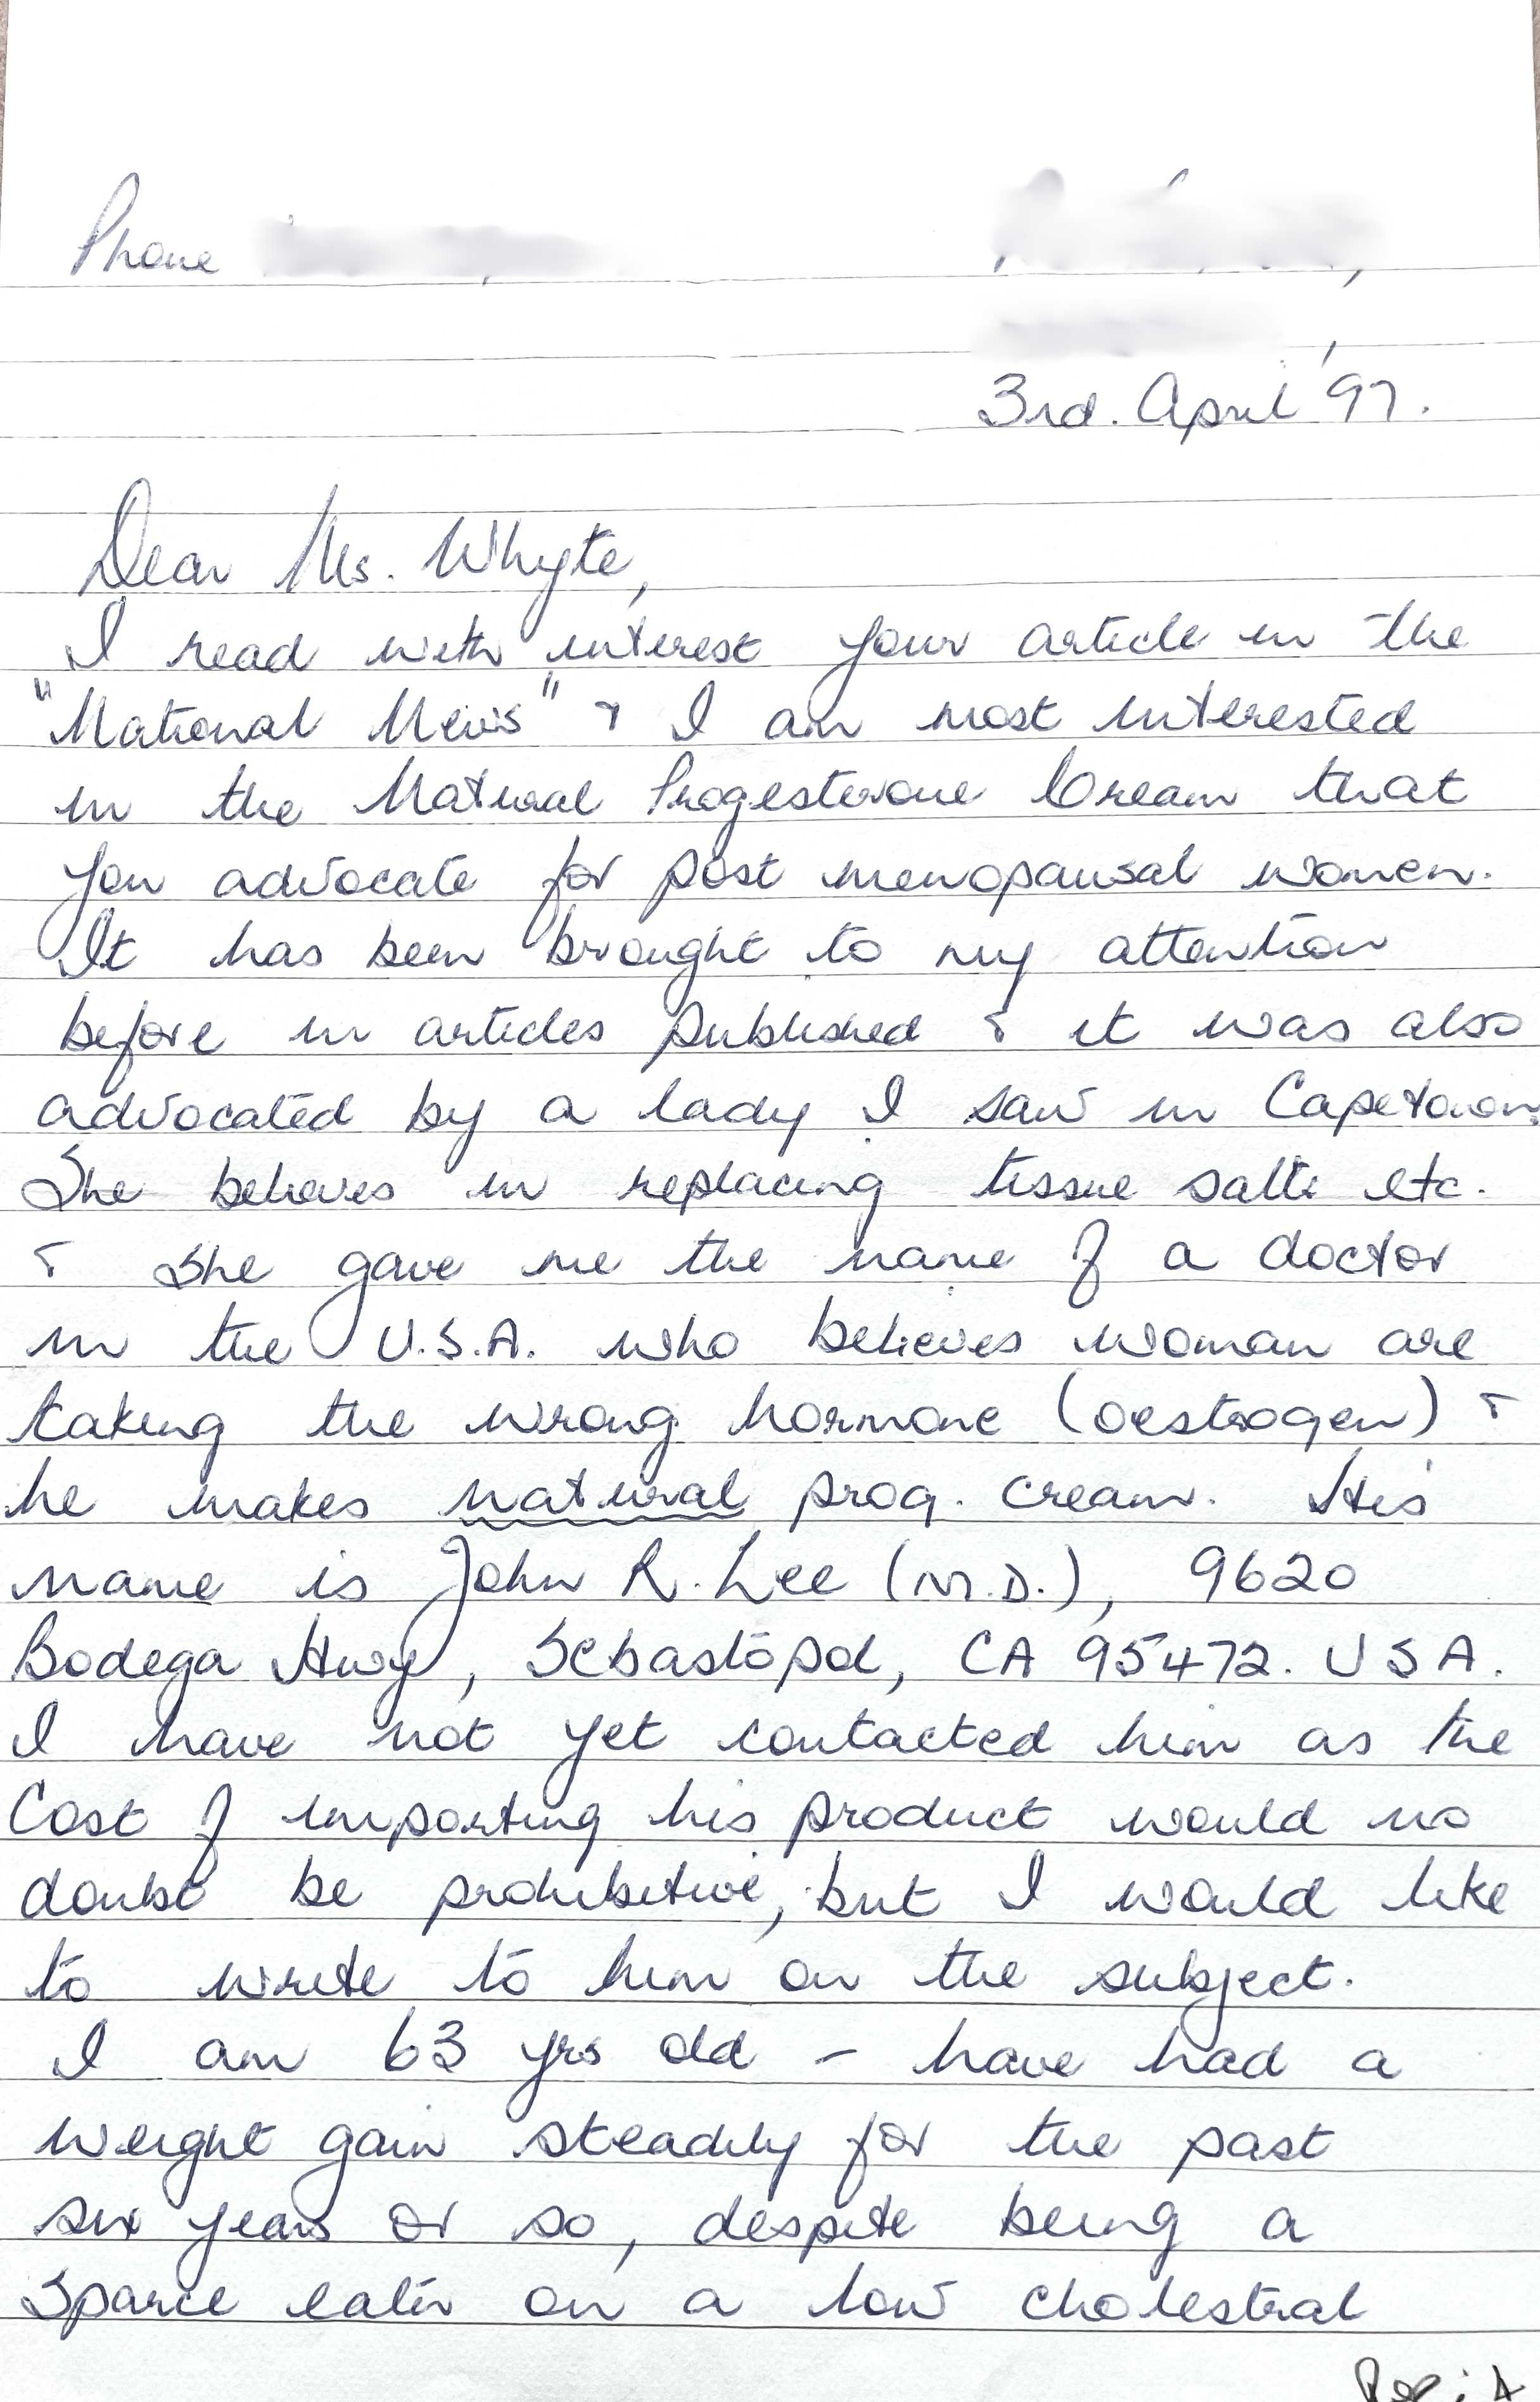 Phone
3rd. April '97.
Dear Ms. Whyte,
I read with interest your article in the
"National News" & I am most interested
in the Natural Progesterone Cream that
you advocate for post menopausal women.
It has been brought to my attention
before in articles published & it was also
advocated by a lady I saw in Capetown.
She believes in replacing tissue salts etc.
& she gave me the name of a doctor
in the U.S.A. who believes woman are
taking the wrong hormone (oestrogen) &
he makes natural prog. cream. His
name is John R. Lee (M.D.), 9620
Bodega Hwy, Sebastopol, CA 95472. USA.
I have not yet contacted him as the
Cost of importing his product would no
doubt be prohibitive, but I would like
to write to him on the subject.
I am 63 yrs old - have had a
weight gain steadily for the past
six years or so, despite being a
sparce eater on a low cholestral